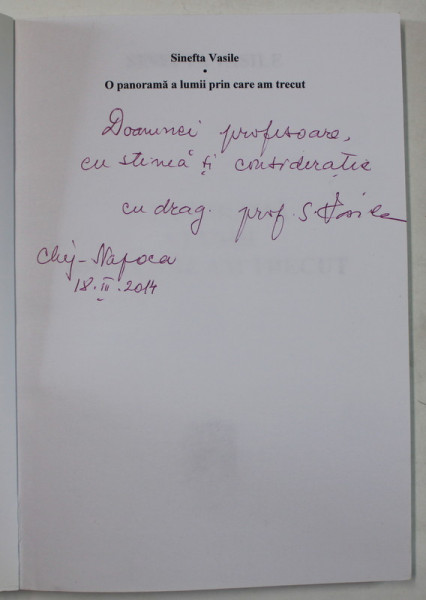 Sinefta Vasile
•
O panoramă a lumii prin care am trecut
Doamnei profesoare,
cu stimă și considerație
cu drag. prof. S. Vasile
Cluj-Napoca
18.III.2014
TRECUT